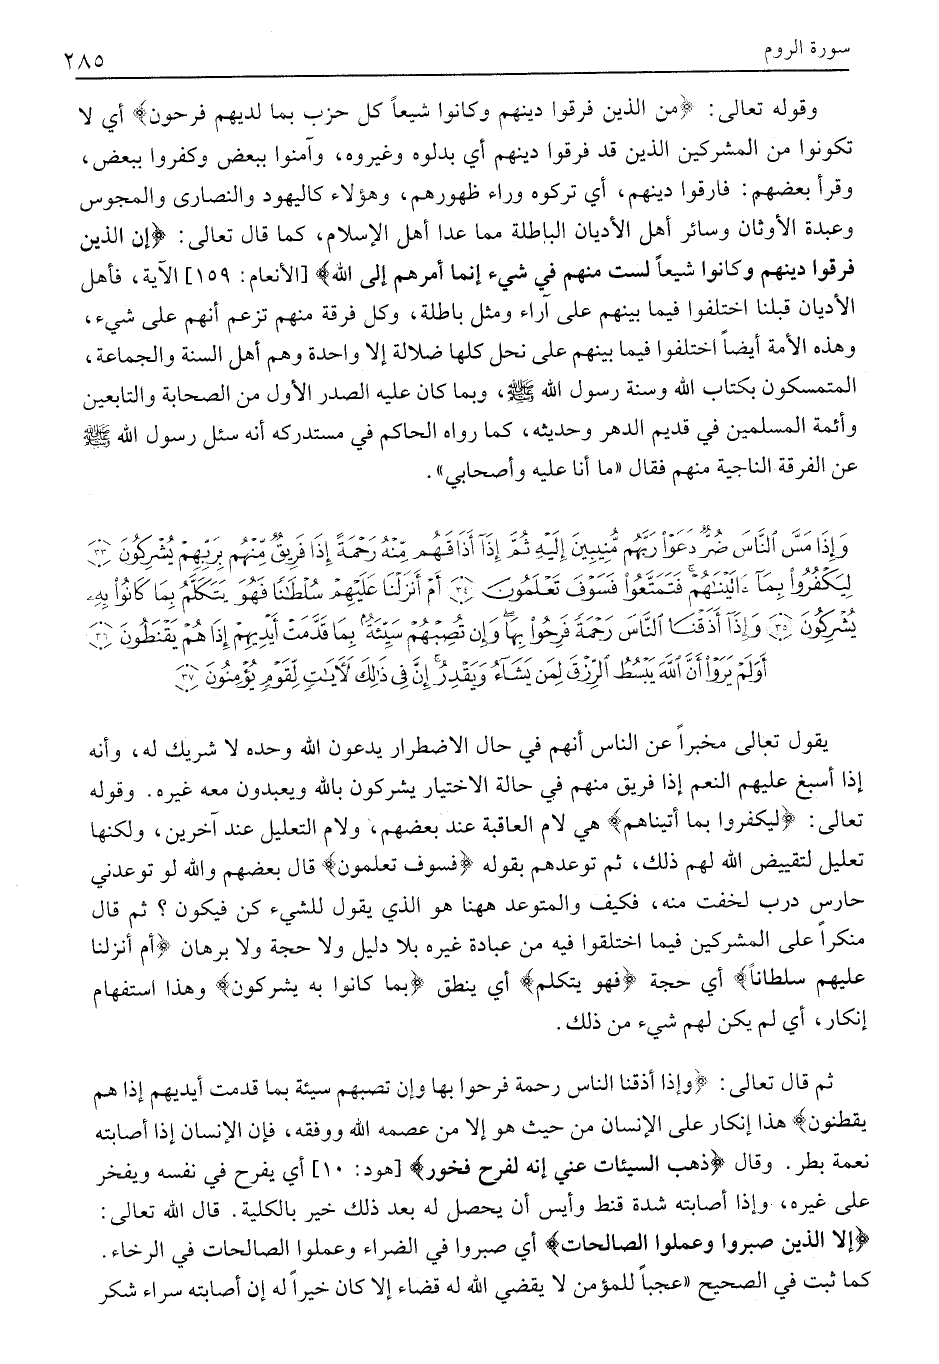 سورة الروم ٢٨٥
وقوله تعالى: ﴿من الذين فرقوا دينهم وكانوا شيعاً كل حزب بما لديهم فرحون﴾ أي لا
تكونوا من المشركين الذين قد فرقوا دينهم أي بدلوه وغيروه، وآمنوا ببعض وكفروا ببعض،
وقرأ بعضهم: فارقوا دينهم، أي تركوه وراء ظهورهم، وهؤلاء كاليهود والنصارى والمجوس
وعبدة الأوثان وسائر أهل الأديان الباطلة مما عدا أهل الإسلام، كما قال تعالى: ﴿إن الذين
فرقوا دينهم وكانوا شيعاً لست منهم في شيء إنما أمرهم إلى الله﴾ [الأنعام: ١٥٩] الآية، فأهل
الأديان قبلنا اختلفوا فيما بينهم على آراء ومثل باطلة، وكل فرقة منهم تزعم أنهم على شيء،
وهذه الأمة أيضاً اختلفوا فيما بينهم على نحل كلها ضلالة إلا واحدة وهم أهل السنة والجماعة،
المتمسكون بكتاب الله وسنة رسول الله ﷺ، وبما كان عليه الصدر الأول من الصحابة والتابعين
وأئمة المسلمين في قديم الدهر وحديثه، كما رواه الحاكم في مستدركه أنه سئل رسول الله ﷺ
عن الفرقة الناجية منهم فقال «ما أنا عليه وأصحابي».
وَإِذَا مَسَّ ٱلنَّاسَ ضُرٌّ دَعَوْا۟ رَبَّهُم مُّنِيبِينَ إِلَيْهِ ثُمَّ إِذَآ أَذَاقَهُم مِّنْهُ رَحْمَةً إِذَا فَرِيقٌ مِّنْهُم بِرَبِّهِمْ يُشْرِكُونَ ٣٣
لِيَكْفُرُوا۟ بِمَآ ءَاتَيْنَٰهُمْ ۚ فَتَمَتَّعُوا۟ فَسَوْفَ تَعْلَمُونَ ٣٤ أَمْ أَنزَلْنَا عَلَيْهِمْ سُلْطَٰنًا فَهُوَ يَتَكَلَّمُ بِمَا كَانُوا۟ بِهِۦ
يُشْرِكُونَ ٣٥ وَإِذَآ أَذَقْنَا ٱلنَّاسَ رَحْمَةً فَرِحُوا۟ بِهَا ۖ وَإِن تُصِبْهُمْ سَيِّئَةٌۢ بِمَا قَدَّمَتْ أَيْدِيهِمْ إِذَا هُمْ يَقْنَطُونَ ٣٦
أَوَلَمْ يَرَوْا۟ أَنَّ ٱللَّهَ يَبْسُطُ ٱلرِّزْقَ لِمَن يَشَآءُ وَيَقْدِرُ ۚ إِنَّ فِى ذَٰلِكَ لَءَايَٰتٍ لِّقَوْمٍ يُؤْمِنُونَ ٣٧
يقول تعالى مخبراً عن الناس أنهم في حال الاضطرار يدعون الله وحده لا شريك له، وأنه
إذا أسبغ عليهم النعم إذا فريق منهم في حالة الاختيار يشركون بالله ويعبدون معه غيره. وقوله
تعالى: ﴿ليكفروا بما أتيناهم﴾ هي لام العاقبة عند بعضهم، ولام التعليل عند آخرين، ولكنها
تعليل لتقييض الله لهم ذلك، ثم توعدهم بقوله ﴿فسوف تعلمون﴾ قال بعضهم والله لو توعدني
حارس درب لخفت منه، فكيف والمتوعد ههنا هو الذي يقول للشيء كن فيكون؟ ثم قال
منكراً على المشركين فيما اختلقوا فيه من عبادة غيره بلا دليل ولا حجة ولا برهان ﴿أم أنزلنا
عليهم سلطاناً﴾ أي حجة ﴿فهو يتكلم﴾ أي ينطق ﴿بما كانوا به يشركون﴾ وهذا استفهام
إنكار، أي لم يكن لهم شيء من ذلك.
ثم قال تعالى: ﴿وإذا أذقنا الناس رحمة فرحوا بها وإن تصبهم سيئة بما قدمت أيديهم إذا هم
يقطنون﴾ هذا إنكار على الإنسان من حيث هو إلا من عصمه الله ووفقه، فإن الإنسان إذا أصابته
نعمة بطر. وقال ﴿ذهب السيئات عني إنه لفرح فخور﴾ [هود: ١٠] أي يفرح في نفسه ويفخر
على غيره، وإذا أصابته شدة قنط وأيس أن يحصل له بعد ذلك خير بالكلية. قال الله تعالى:
﴿إلا الذين صبروا وعملوا الصالحات﴾ أي صبروا في الضراء وعملوا الصالحات في الرخاء.
كما ثبت في الصحيح «عجباً للمؤمن لا يقضي الله له قضاء إلا كان خيراً له إن أصابته سراء شكر